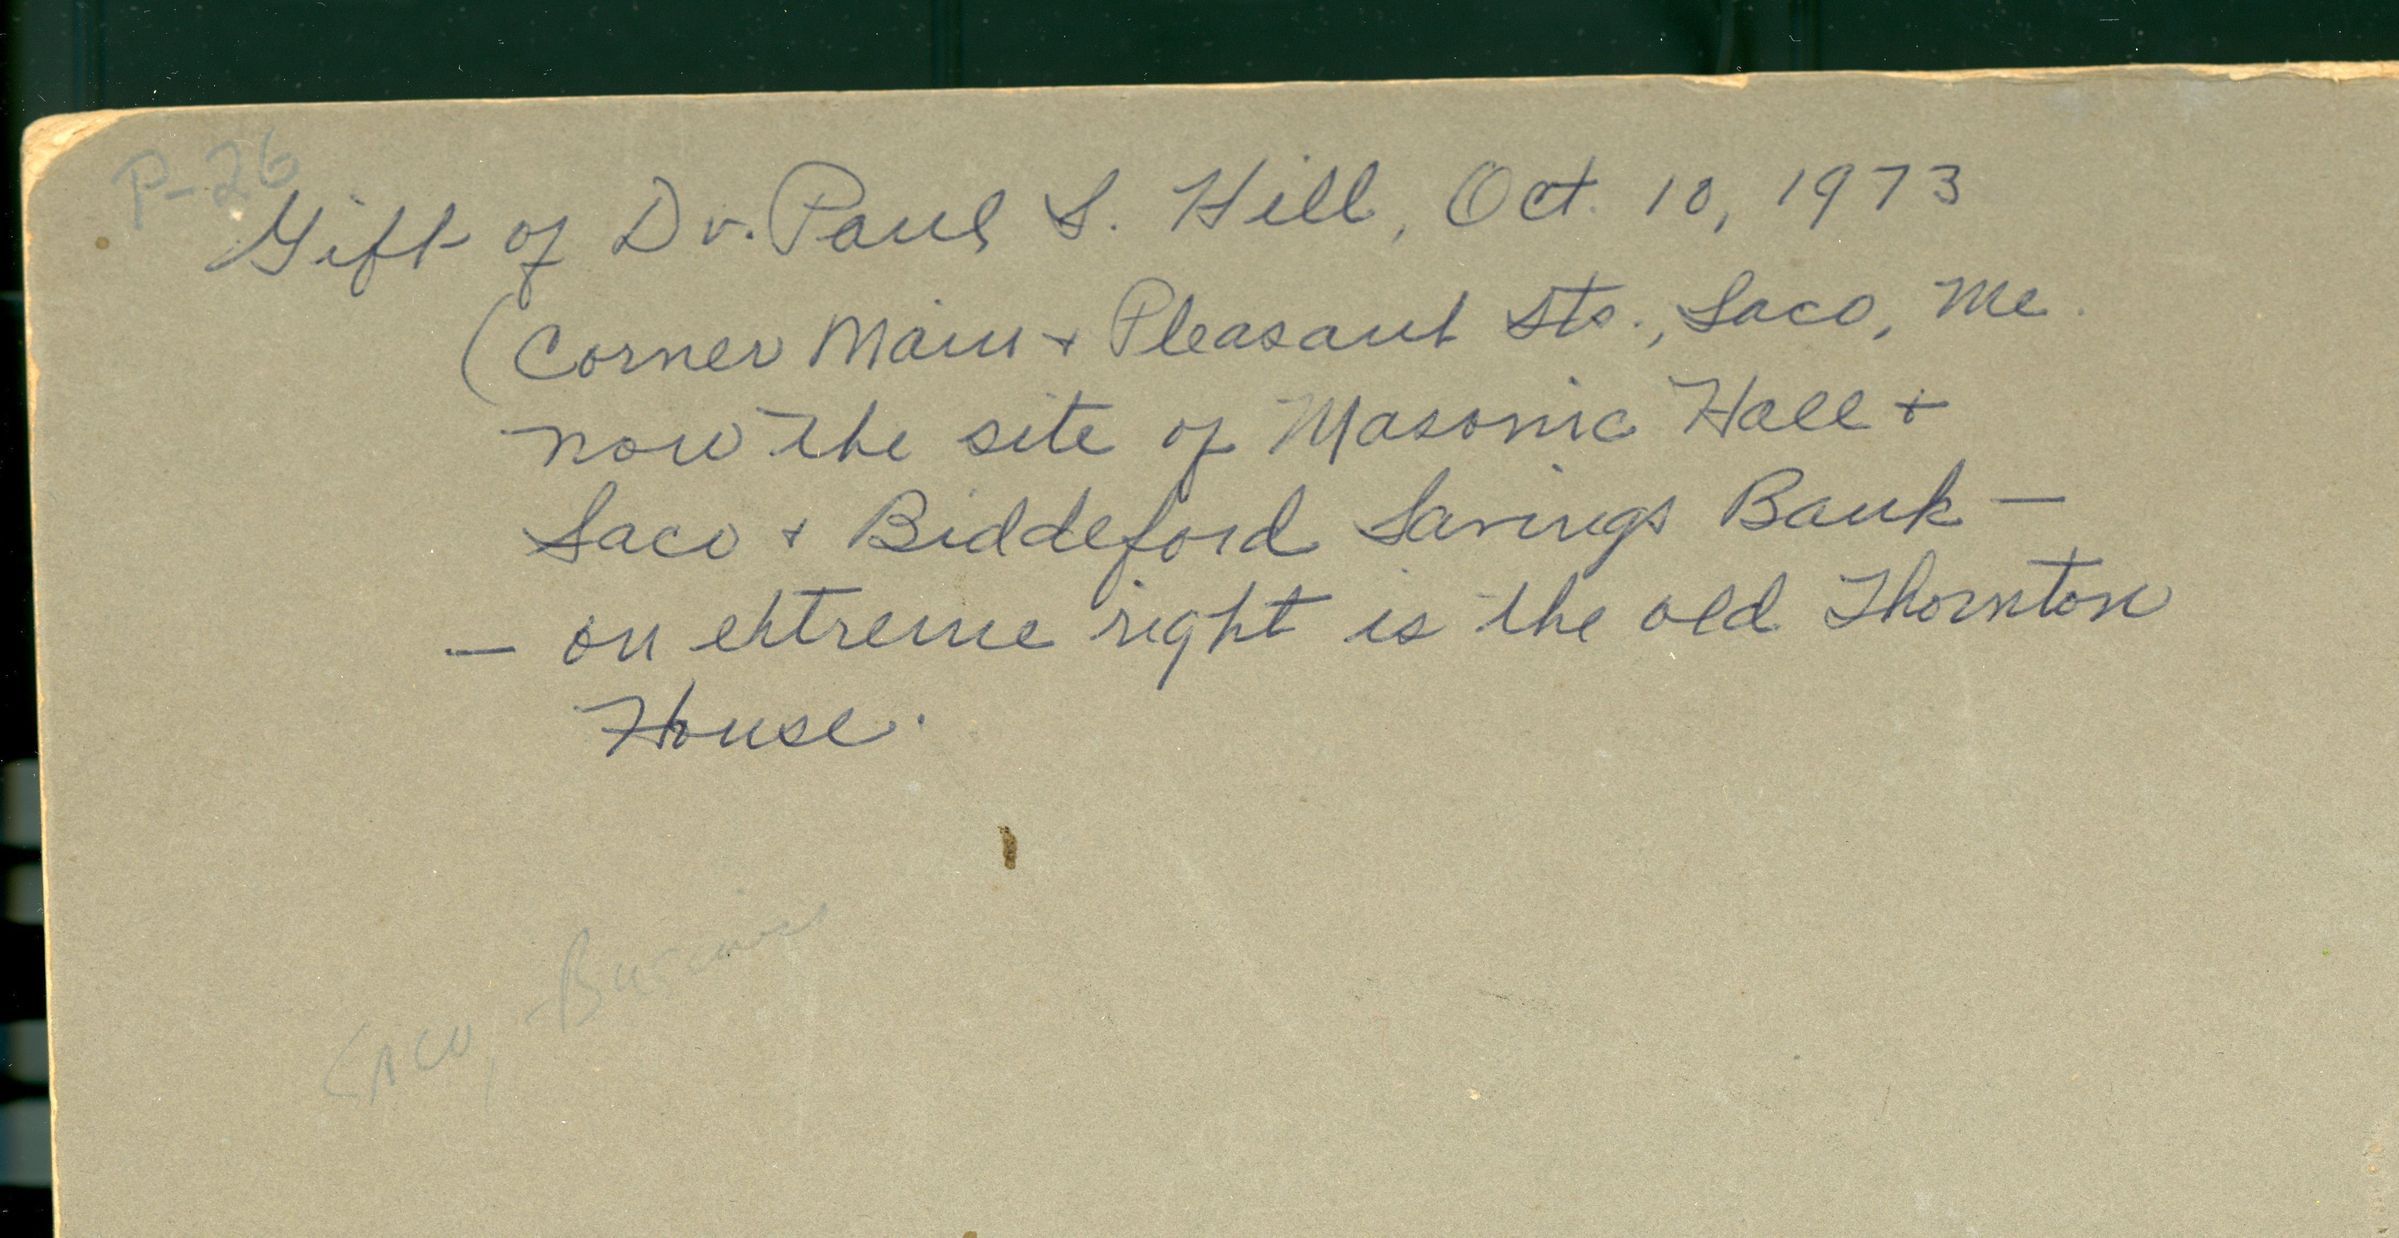 P-26
Gift of Dr. Paul S. Hill, Oct. 10, 1973
(Corner Main + Pleasant Sts., Saco, Me.
now the site of Masonic Hall +
Saco + Biddeford Savings Bank —
— on extreme right is the old Thornton
House.
Saco, Business